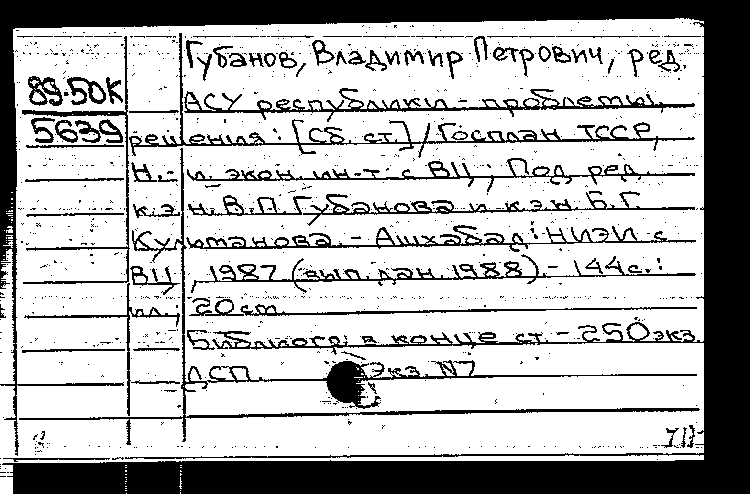 Губанов, Владимир Петрович, ред.
89-50К
АСУ республики - проблемы,
5639
решения: [Сб. ст.] / Госплан ТССР,
Н.-и. экон. ин-т с ВЦ; Под ред.
к.э.н. В.П. Губанова и к.э.н. Б.Г.
Кульманова. - Ашхабад: НИЭИ с
ВЦ, 1987 (вып. дан. 1988). - 144 с.:
ил.; 20 см.
Библиогр. в конце ст. - 250 экз.
ДСП. Экз. N7